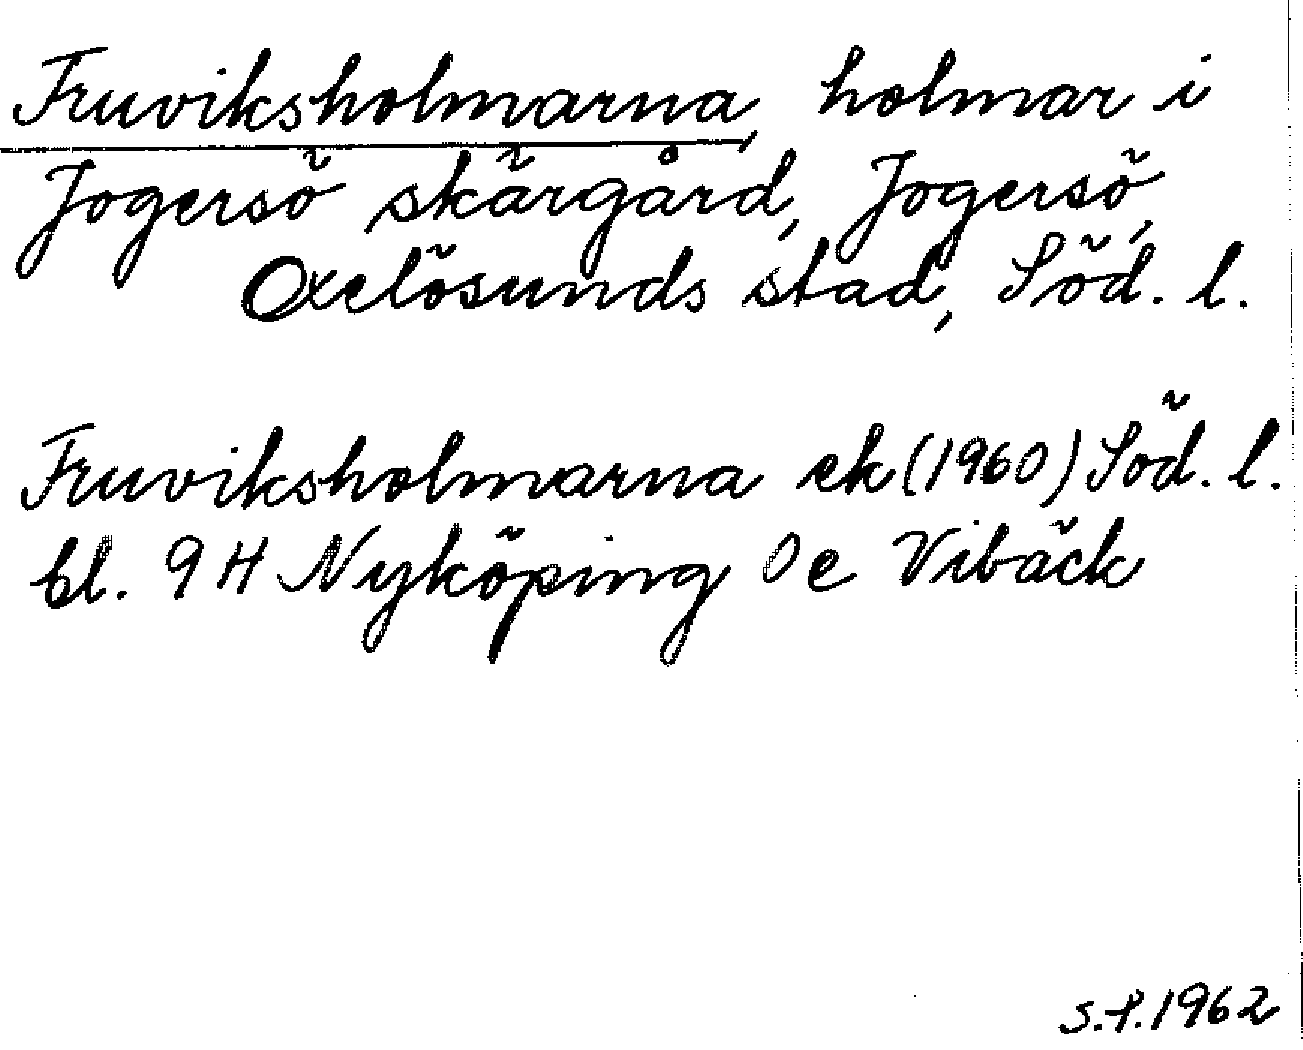 Fruviksholmarna, holmar i
Jogersö skärgård, Jogersö,
Oxelösunds stad, Söd. l.
Fruviksholmarna ek (1960) Söd. l.
bl. 9 H Nyköping 0 e Vibäck
S.P. 1962